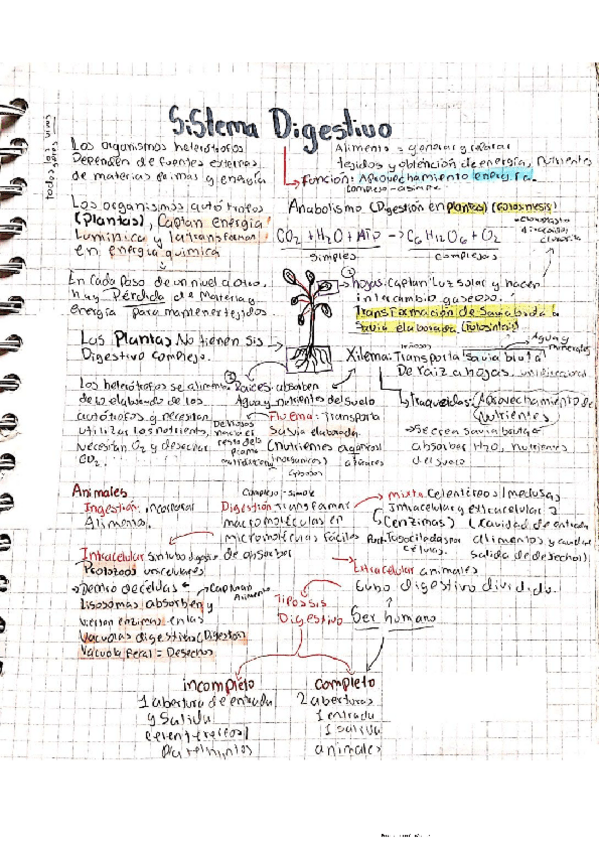 Sistema Digestivo
todos los seres vivos
Los organismos heterótrofos
Dependen de fuentes externas
de materias primas y energía
Alimento = generar y reparar
tejidos y obtención de energía, nutrientes
Función: Aprovechamiento energía.
Los organismos autótrofos
(plantas), Captan energía
Luminica y la transforman
en energía química
Anabolismo (Digestión en plantas) (Fotosíntesis)
CO2 + H2O + ATP → C6 H12O6 + O2
simples
complejas
En cada paso de un nivel a otro
hay Pérdida de Materia y
energía para mantener tejidos.
① hojas: Captan luz solar y hacen
intercambio gaseoso.
Transformación de Savia bruta a
Savia elaborada (fotosíntesis)
Las Plantas No tienen sis
Digestivo complejo.
Agua y minerales
Xilema: Transporta savia bruta
De raíz a hojas, unidireccional
Los heterótrofos se alimentan
de lo elaborado de los
autótrofos y necesitan
utilizar los nutrientes,
necesitan O2 y desechar
CO2.
② Raíces: absorben
Agua y nutrientes del suelo
Fluema: Transporta
savia elaborada
(nutrientes orgánicos)
De hojas
hacia el
resto de la
planta
traqueidas: (Aprovechamiento de
nutrientes)
→ Se crea savia bruta
absorber H2O, nutrientes
del suelo
Animales
Ingestión: incorporar
Alimento.
Complejo - simple
Digestión Transformar
macromoléculas en
micromoléculas fáciles
de absorber
mixta: Celentéreos (medusas)
Intracelular y extracelular
(enzimas)
(cavidad de entrada
alimentos y
salida de desechos)
células.
Intracelular: sin tubo digestivo
Protozoos unicelulares
→ Dentro de células
Capturan
Alimento
Lisosomas absorben y
vierten enzimas en las
Vacuolas digestivas (Digestión)
Vacuola fecal = Desechos
Extracelular animales
tubo digestivo dividido.
Tipos sis
Digestivo
Ser humano
incompleto
1 abertura de entrada
y salida
celentéreos
completo
2 aberturas
1 entrada
1 salida
animales